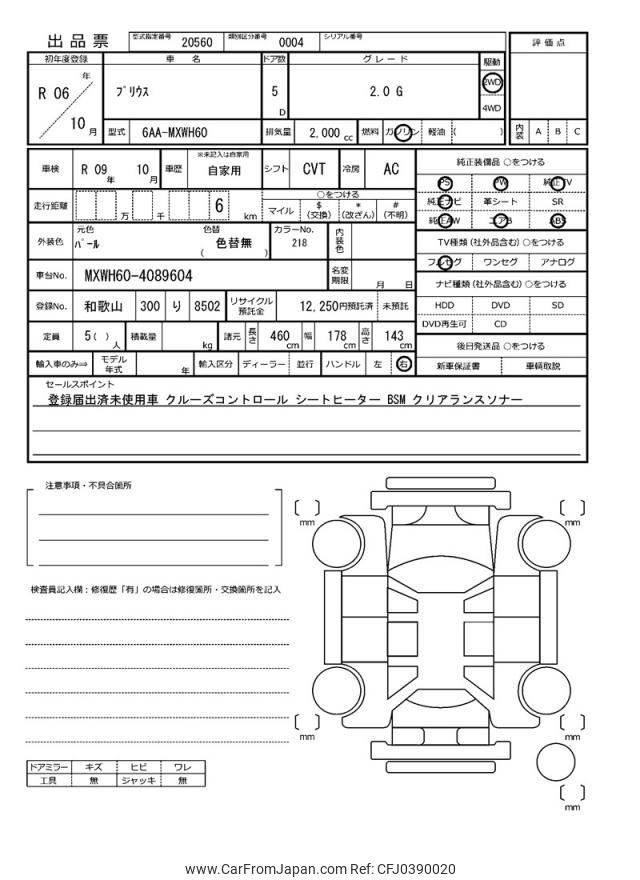 出品票 型式指定番号 20560 類別区分番号 0004 シリアル番号
評価点
初年度登録 車名 ドア数 グレード 駆動
R 06 年 ﾌﾟﾘｳｽ 5 D 2.0 G 2WD
4WD
10 月 型式 6AA-MXWH60 排気量 2,000 cc 燃料 ガソリン 軽油 ( ) 内装 A B C
車検 R 09 年 10 月 車歴 ※未記入は自家用 自家用 シフト CVT 冷房 AC
純正装備品 ○をつける
PS PW 純正TV
純正ナビ 革シート SR
純正AW エアB ABS
走行距離 万 千 6 km ○をつける
マイル $(交換) *(改ざん) #(不明)
外装色 元色 ﾊﾟｰﾙ 色替 色替無 ( ) カラーNo. 218 内装色
TV種類 (社外品含む) ○をつける
フルセグ ワンセグ アナログ
車台No. MXWH60-4089604 名変期限 月 日
ナビ種類 (社外品含む) ○をつける
HDD DVD SD
DVD再生可 CD
登録No. 和歌山 300 り 8502 リサイクル預託金 12,250円預託済 未預託
定員 5( ) 人 積載量 kg 諸元 長さ 460 cm 幅 178 cm 高さ 143 cm
後日発送品 ○をつける
新車保証書 車輌取説
輸入車のみ⇒ モデル年式 年 輸入区分 ディーラー 並行 ハンドル 左 右
セールスポイント
登録届出済未使用車 クルーズコントロール シートヒーター BSM クリアランスソナー
注意事項・不具合箇所
検査員記入欄：修復歴「有」の場合は修復箇所・交換箇所を記入
mm
mm
mm
mm
mm
ドアミラー キズ ヒビ ワレ
工具 無 ジャッキ 無
www.CarFromJapan.com Ref: CFJ0390020